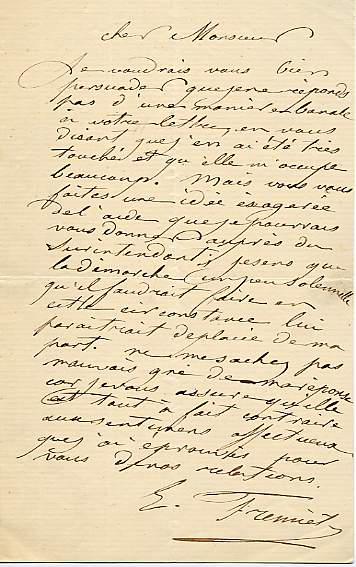 cher Monsieur
Je voudrais vous bien
persuader que je ne réponds
pas d'une manière banale
à votre lettre, en vous
disant que j'en ai été très
touché et qu'elle m'occupe
beaucoup. Mais vous vous
faites une idée exagérée
de l'aide que je pourrais
vous donner auprès du
Surintendant. je sens que
la démarche un peu solennelle
qu'il faudrait faire en
cette circonstance lui
paraitrait déplacée de ma
part. ne me sachez pas
mauvais gré de ma réponse
car je vous assure qu'elle
est tout à fait contraire
aux sentimens affectueux
que j'ai éprouvés pour
vous d nos relations.
E. Fremiet